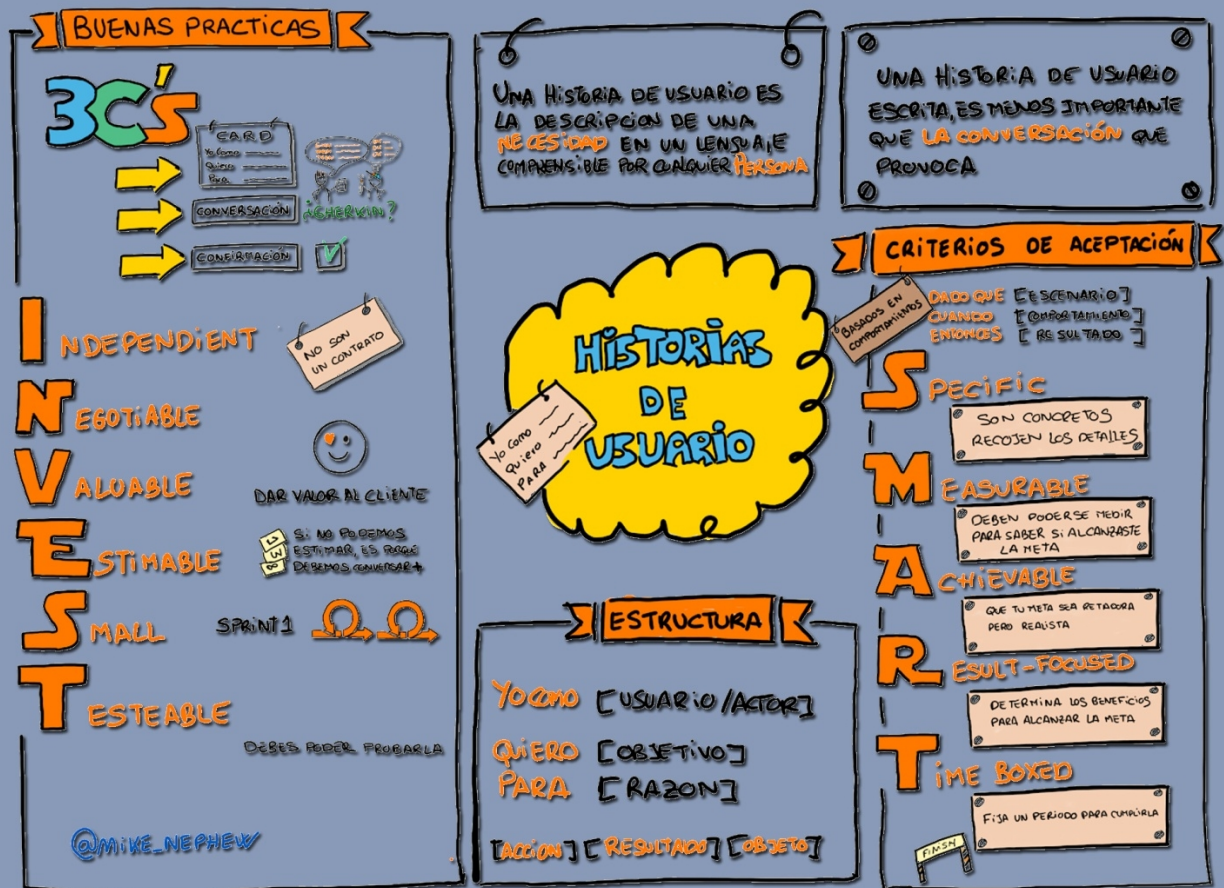 BUENAS PRACTICAS
3C'S
CARD
Yo Como
Quiero
Para
CONVERSACIÓN
¿GHERKIN?
CONFIRMACIÓN
INDEPENDIENT
NO SON
UN CONTRATO
NEGOTIABLE
VALUABLE
DAR VALOR AL CLIENTE
ESTIMABLE
SI NO PODEMOS
ESTIMAR, ES PORQUE
DEBEMOS CONVERSAR +
SMALL
SPRINT 1
TESTEABLE
DEBES PODER PROBARLA
@MIKE_NEPHEW
UNA HISTORIA DE USUARIO ES
LA DESCRIPCION DE UNA
NECESIDAD EN UN LENGUAJE
COMPRENSIBLE POR CUALQUIER PERSONA
UNA HISTORIA DE USUARIO
ESCRITA, ES MENOS IMPORTANTE
QUE LA CONVERSACIÓN QUE
PROVOCA
HISTORIAS
DE
USUARIO
Yo Como
Quiero
PARA
ESTRUCTURA
YO COMO [USUARIO/ACTOR]
QUIERO [OBJETIVO]
PARA [RAZON]
[ACCION] [RESULTADO] [OBJETO]
CRITERIOS DE ACEPTACIÓN
BASADOS EN
COMPORTAMIENTOS
DADO QUE [ESCENARIO]
CUANDO [COMPORTAMIENTO]
ENTONCES [RESULTADO]
SPECIFIC
SON CONCRETOS
RECOJEN LOS DETALLES
MEASURABLE
DEBEN PODERSE MEDIR
PARA SABER SI ALCANZASTE
LA META
ACHIEVABLE
QUE TU META SEA RETADORA
PERO REALISTA
RESULT-FOCUSED
DETERMINA LOS BENEFICIOS
PARA ALCANZAR LA META
TIME BOXED
FIJA UN PERIODO PARA CUMPLIRLA